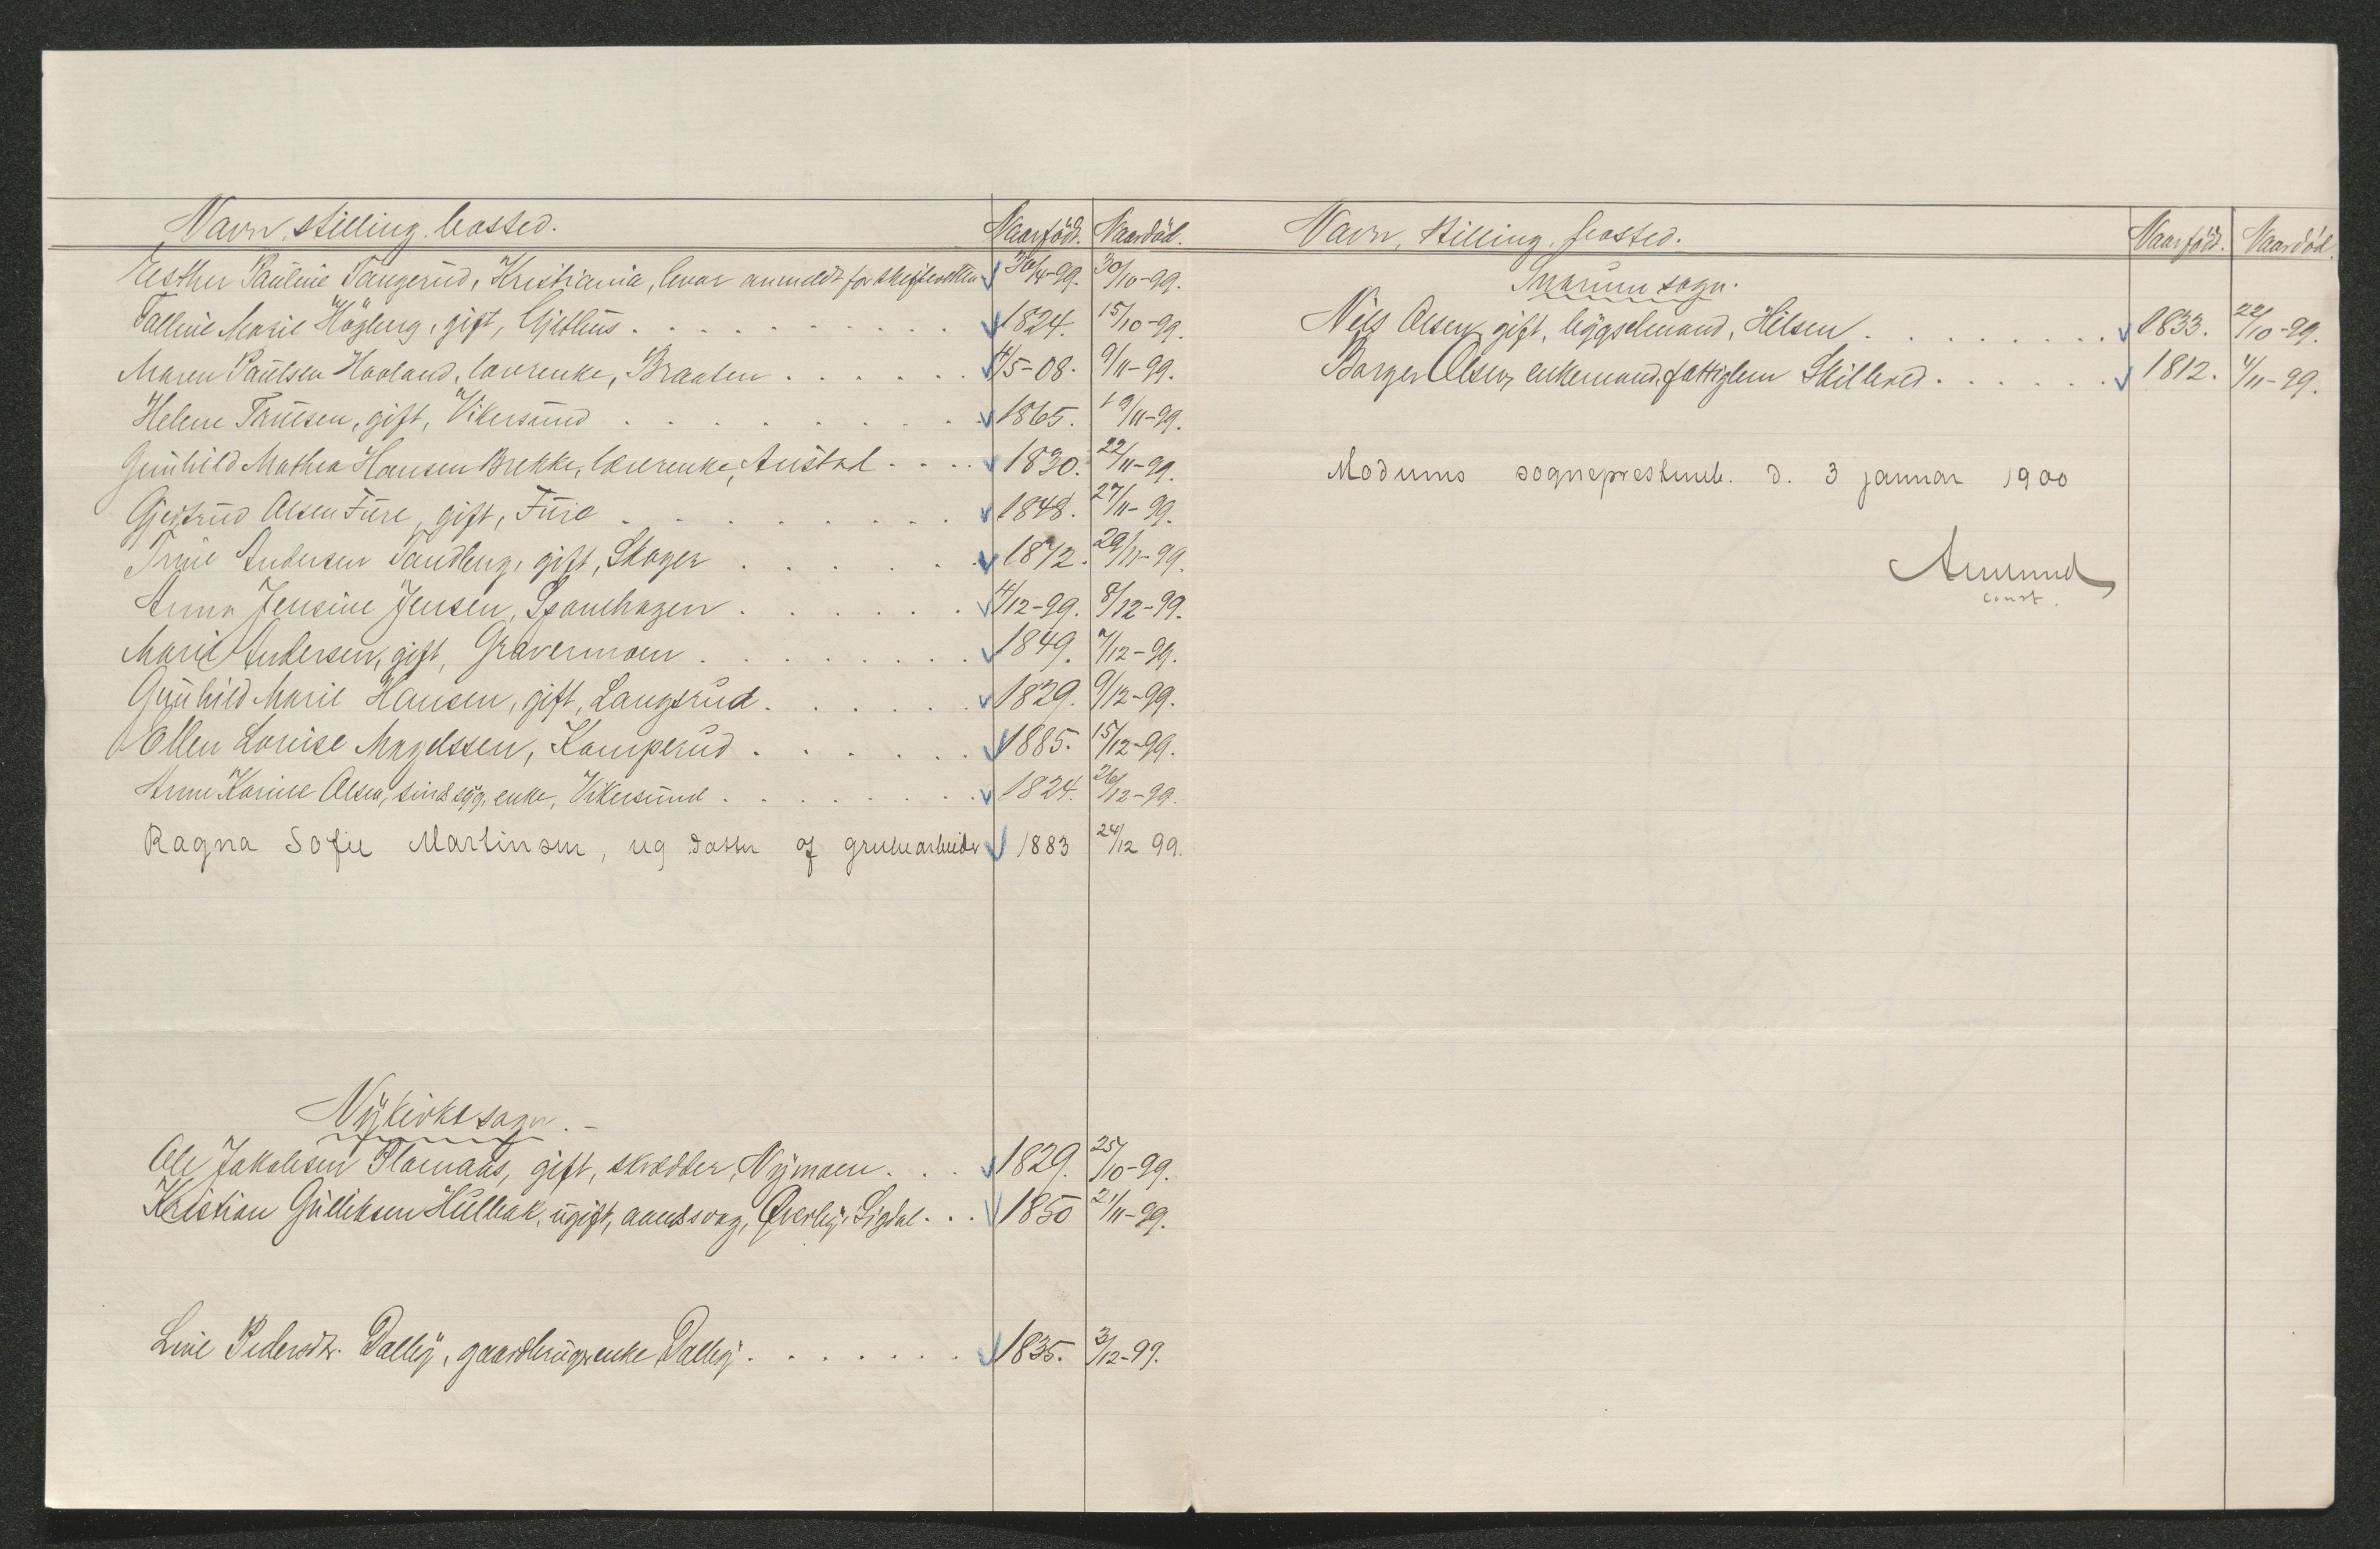 Navn, stilling, bosted. Naar född. Naar död.
Esther Pauline Tangerud, Kristiania, hvor anmeldt for skifteretten 30/4-99. 30/10-99.
Talline Marie Högberg, gift, Gjethus 1824. 15/10-99.
Maren Paulsen Hovland, lærerenke, Braaten 4/5-08. 9/11-99.
Helene Trulsen, gift, Vikersund 1865. 19/11-99.
Gunhild Mathea Hansen Brekke, lærerenke, Austad 1830. 22/11-99.
Gjertrud Olsen Fure, gift, Fure 1848. 27/11-99.
Trine Andersen Sandberg, gift, Skoger 1872. 29/11-99.
Anna Jensine Jensen, Sponehagen 4/12-99. 8/12-99.
Marie Andersen, gift, Gravermoen 1849. 7/12-99.
Gunhild Marie Hansen, gift, Langerud 1829. 9/12-99.
Ellen Louise Magelssen, Komperud 1885. 15/12-99.
Anne Karine Olsen, sindssyg, enke, Vikersund 1824. 26/12-99.
Ragna Sofie Martinsen, ug datter af grubearbeider 1883 24/12 99.
Nykirke sogn.
Ole Jakobsen Plomaas, gift, skrædder, Nymoen 1829. 25/10-99.
Kristian Gulliksen Hulbak, ugift, aandssvag, Överby, Sigdal 1850 21/11-99.
Line Pedersdtr. Dalby, gaardbrugerenke Dalby 1835. 3/12-99.
Navn, stilling, bosted. Naar född. Naar död.
Snarum sogn.
Nils Olsen, gift, bygselmand, Hilsen 1833. 22/10-99.
Borger Olsen, enkemand, fattiglem Skillerud 1812. 4/11-99.
Modums sogneprestemb. d. 3 januar 1900
Amund
const.